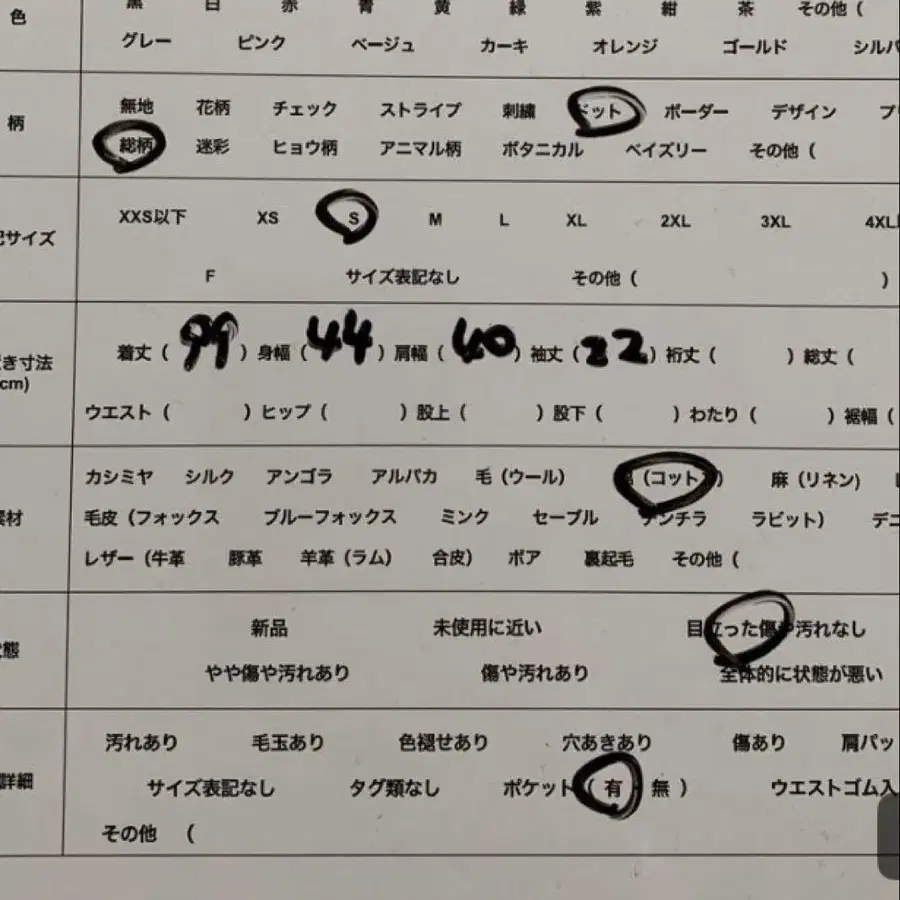 色 黒 白 赤 青 黄 緑 紫 紺 茶 その他（
グレー ピンク ベージュ カーキ オレンジ ゴールド シルバ
柄 無地 花柄 チェック ストライプ 刺繍 ドット ボーダー デザイン プ
総柄 迷彩 ヒョウ柄 アニマル柄 ボタニカル ペイズリー その他（
記サイズ XXS以下 XS S M L XL 2XL 3XL 4XL
F サイズ表記なし その他（ ）
き寸法 着丈（ 99 ）身幅（ 44 ）肩幅（ 40 ）袖丈（ 22 ）裄丈（ ）総丈（
cm)
ウエスト（ ）ヒップ（ ）股上（ ）股下（ ）わたり（ ）裾幅（
カシミヤ シルク アンゴラ アルパカ 毛（ウール） （コットン） 麻（リネン)
素材 毛皮（フォックス ブルーフォックス ミンク セーブル チンチラ ラビット） デニ
レザー（牛革 豚革 羊革（ラム） 合皮） ボア 裏起毛 その他（
新品 未使用に近い 目立った傷や汚れなし
態 やや傷や汚れあり 傷や汚れあり 全体的に状態が悪い
汚れあり 毛玉あり 色褪せあり 穴あきあり 傷あり 肩パッ
詳細 サイズ表記なし タグ類なし ポケット（ 有 ・ 無 ） ウエストゴム入
その他 （